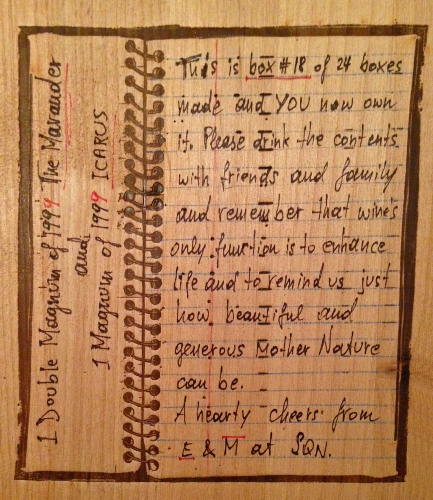 1 Double Magnum of 1999 The Marauder
and
1 Magnum of 1999 ICARUS
This is box #18 of 24 boxes
made and YOU now own
it. Please drink the contents
with friends and family
and remember that wine's
only function is to enhance
life and to remind us just
how beautiful and
generous Mother Nature
can be.
A hearty cheers from
E & M at SQN.